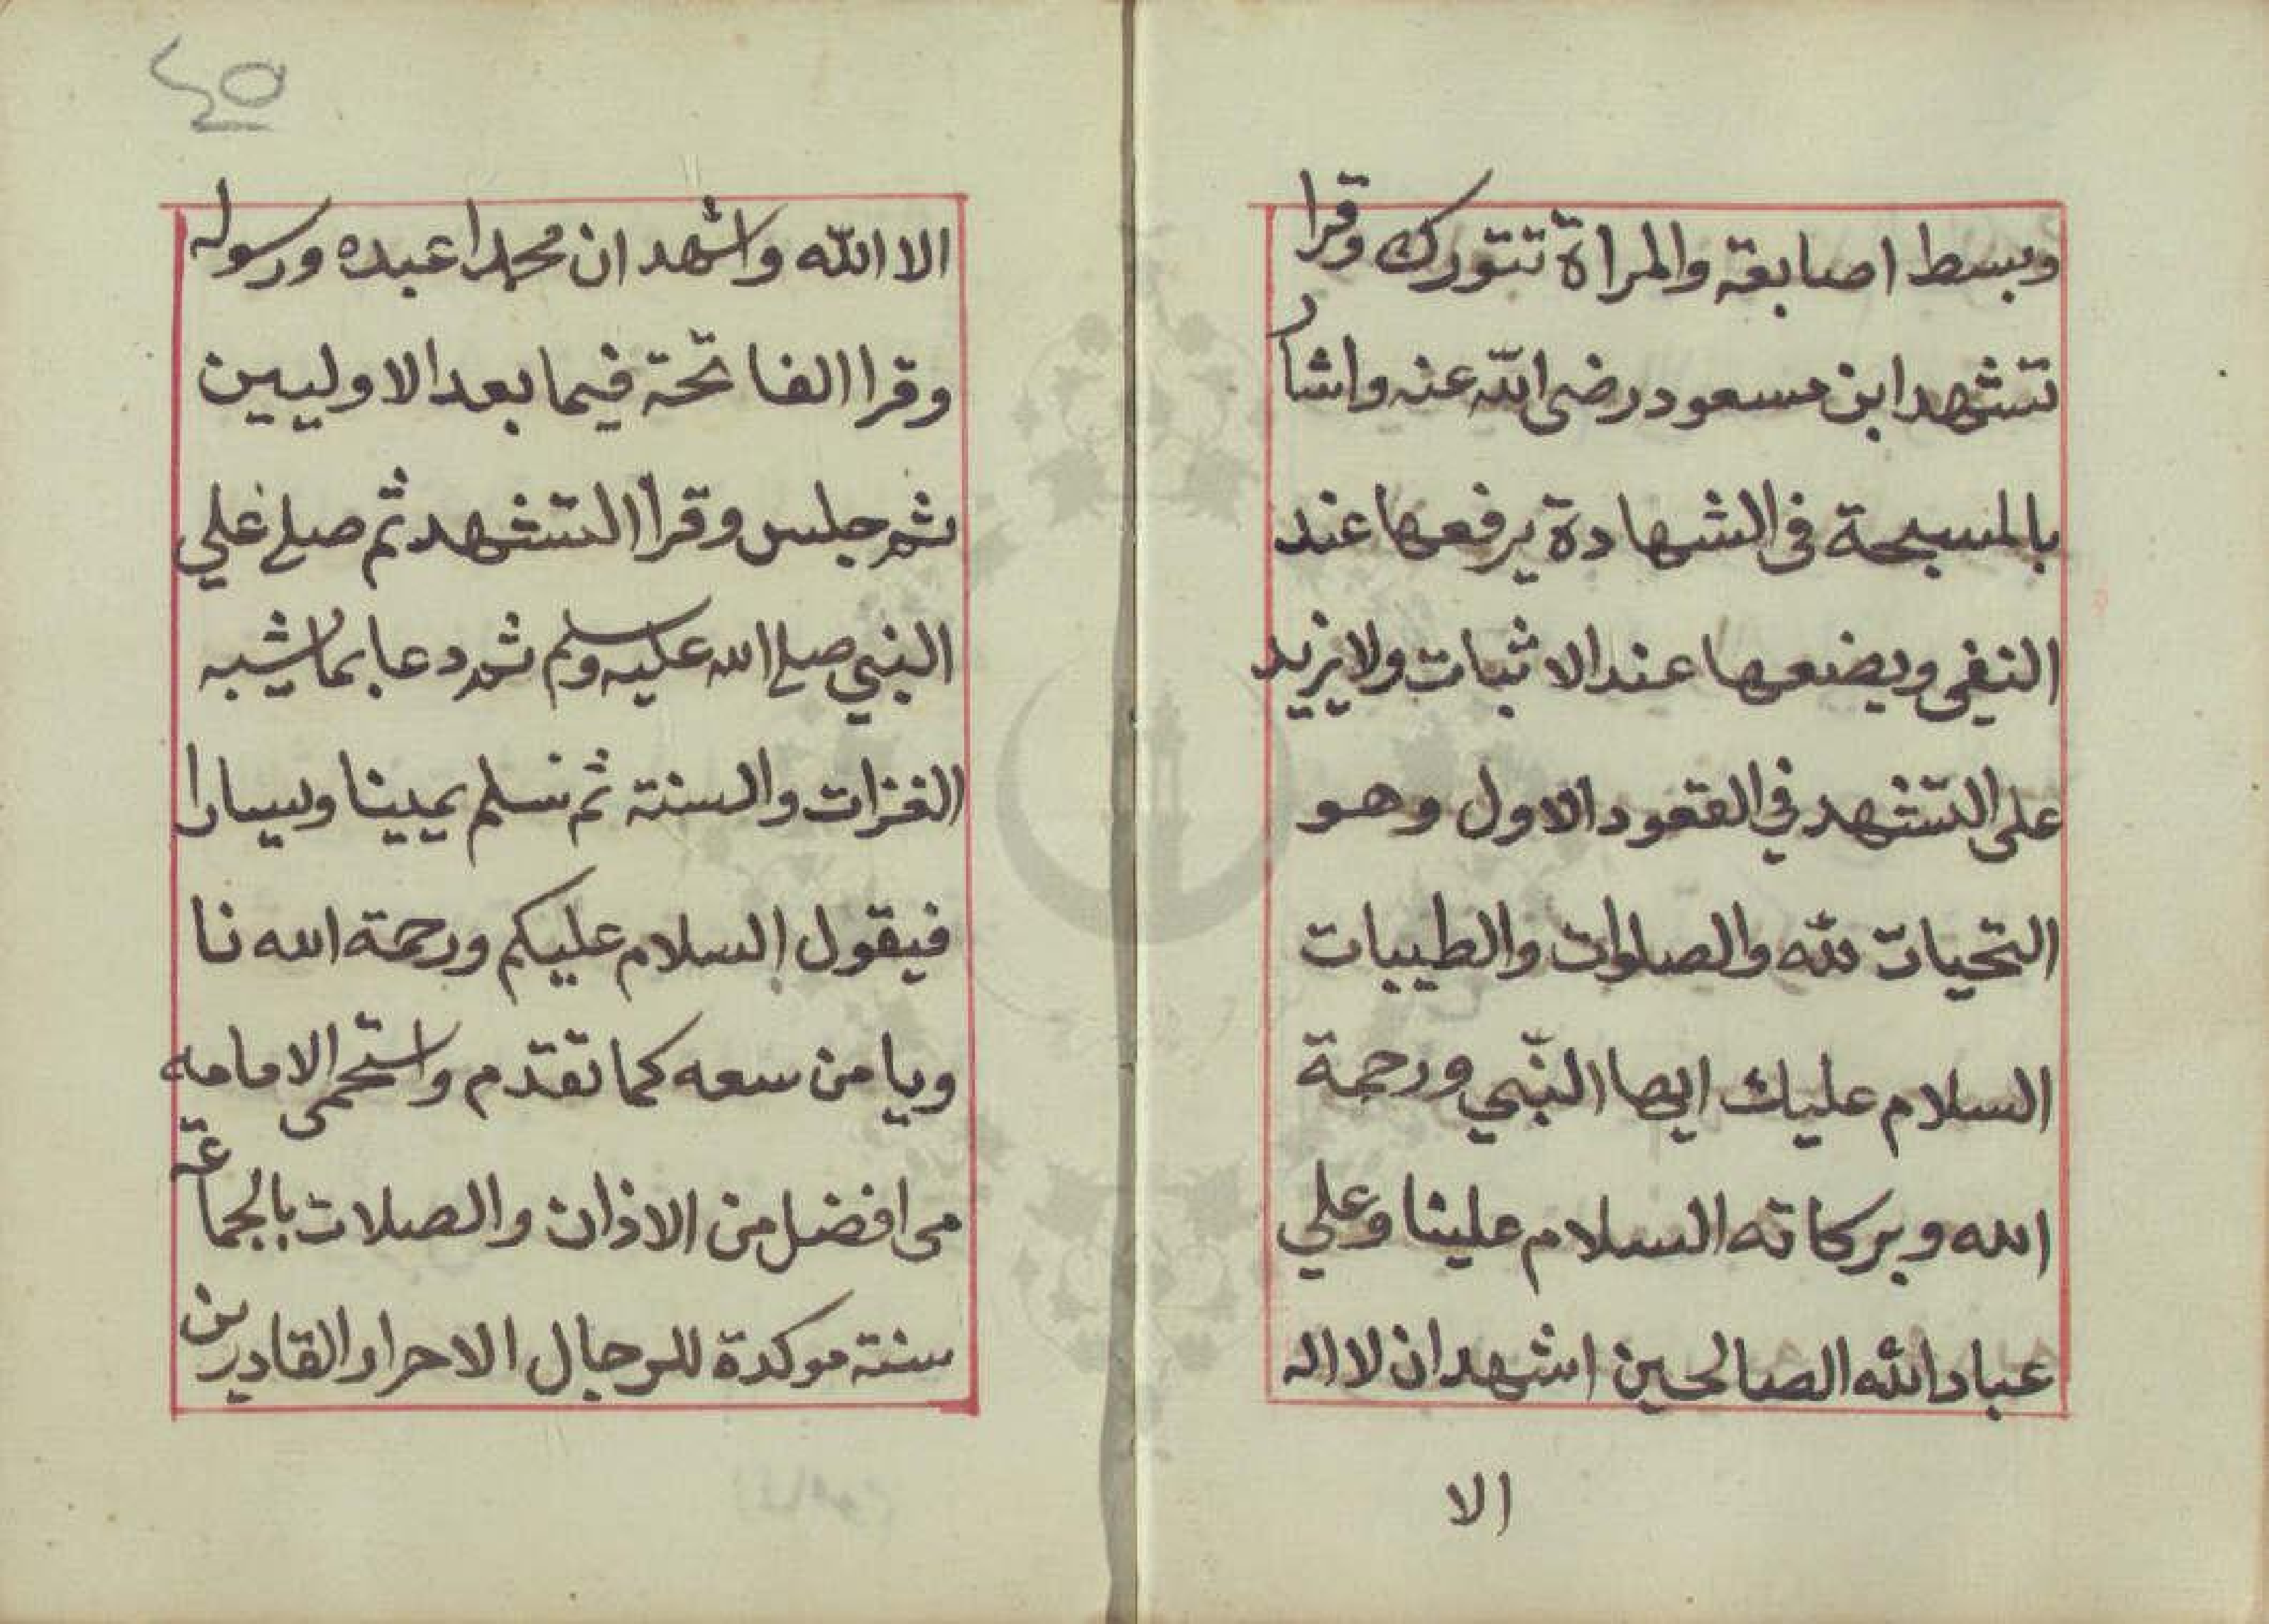 وبسط اصابعة والمراة تتورك وقرا
تشهد ابن مسعود رضى الله عنه واشار
بالمسبحة فى الشهادة يرفعها عند
النفى ويضعها عند الاثبات ولا يزيد
على التشهد في القعود الاول وهو
التحيات لله والصلوات والطيبات
السلام عليك ايها النبي ورحمة
الله وبركاته السلام علينا وعلي
عباد الله الصالحين اشهد ان لا اله
الا
٤٥
الا الله واشهد ان محمدا عبده ورسوله
وقرا الفاتحة فيما بعد الاوليين
ثم جلس وقرأ التشهد ثم صلى علي
النبي صلى الله عليه وسلم ثم دعا بما يشبه
والسنة ثم يسلم يمينا ويسارا
فيقول السلام عليكم ورحمة الله نا
ويا من سعه كما تقدم الامامه
هى افضل من الاذان والصلات بالجماعة
سنة موكدة للرجال الاحرار القادرين